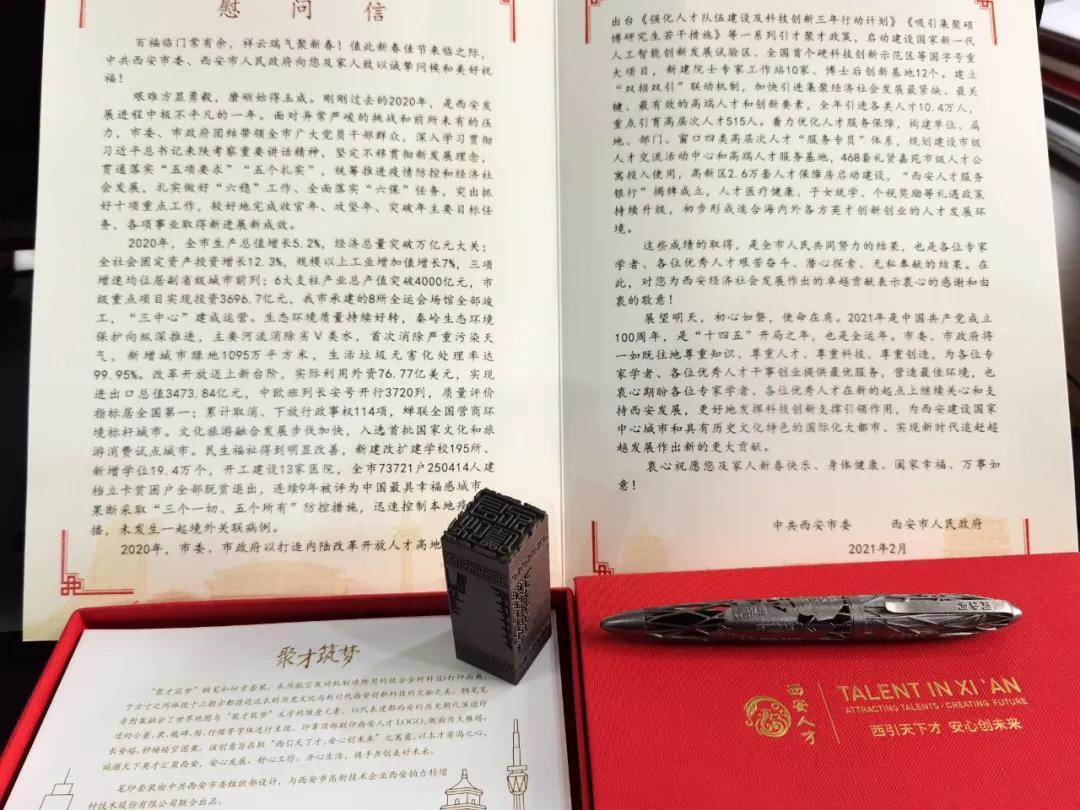 慰问信
百福临门常有余，祥云瑞气聚新春！值此新春佳节来临之际，
中共西安市委、西安市人民政府向您及家人致以诚挚问候和美好祝
福！
艰难方显勇毅，磨砺始得玉成。刚刚过去的2020年，是西安发
展进程中极不平凡的一年。面对异常严峻的挑战和前所未有的压
力，市委、市政府团结带领全市广大党员干部群众，深入学习贯彻
习近平总书记来陕考察重要讲话精神，坚定不移贯彻新发展理念，
贯通落实“五项要求”“五个扎实”，统筹推进疫情防控和经济社
会发展，扎实做好“六稳”工作、全面落实“六保”任务，突出抓
好十项重点工作，较好地完成收官年、攻坚年、突破年主要目标任
务，各项事业取得新进展新成效。
2020年，全市生产总值增长5.2%，经济总量突破万亿元大关；
全社会固定资产投资增长12.3%，规模以上工业增加值增长7%，三项
增速均位居副省级城市前列；6大支柱产业总产值突破4000亿元，市
级重点项目实现投资3696.7亿元，我市承建的8所全运会场馆全部竣
工，“三中心”建成运营。生态环境质量持续好转，秦岭生态环境
保护向纵深推进，主要河流消除劣Ⅴ类水，首次消除严重污染天
气，新增城市绿地1095万平方米，生活垃圾无害化处理率达
99.95%。改革开放迈上新台阶，实际利用外资76.77亿美元，实现
进出口总值3473.84亿元，中欧班列长安号开行3720列，质量评价
指标居全国第一；累计取消、下放行政事权114项，蝉联全国营商环
境标杆城市。文化旅游融合发展步伐加快，入选首批国家文化和旅
游消费试点城市。民生福祉得到明显改善，新建改扩建学校195所、
新增学位19.4万个，开工建设13家医院，全市73721户250414人建
档立卡贫困户全部脱贫退出，连续9年被评为中国最具幸福感城市
果断采取“三个一切、五个所有”防控措施，迅速控制本地疫
播，未发生一起境外关联病例。
2020年，市委、市政府以打造内陆改革开放人才高地
出台《强化人才队伍建设及科技创新三年行动计划》《吸引集聚硕
博研究生若干措施》等一系列引才聚才政策，启动建设国家新一代
人工智能创新发展试验区、全国首个硬科技创新示范区等国字号重
大项目，新建院士专家工作站10家、博士后创新基地12个。建立
“双招双引”联动机制，加快引进集聚经济社会发展最紧缺、最关
键、最有效的高端人才和创新要素，全年引进各类人才10.4万人，
重点引育高层次人才515人。着力优化人才服务保障，构建单位、属
地、部门、窗口四类高层次人才“服务专员”体系，规划建设市级
人才交流活动中心和高端人才服务基地，468套礼贤嘉苑市级人才公
寓投入使用，高新区2.6万套人才保障房启动建设，“西安人才服务
银行”揭牌成立，人才医疗健康、子女就学、个税奖励等礼遇政策
持续升级，初步形成适合海内外各方英才创新创业的人才发展环
境。
这些成绩的取得，是全市人民共同努力的结果，也是各位专家
学者、各位优秀人才艰苦奋斗、潜心探索、无私奉献的结果。在
此，对您为西安经济社会发展作出的卓越贡献表示衷心的感谢和由
衷的敬意！
展望明天，初心如磐，使命在肩。2021年是中国共产党成立
100周年，是“十四五”开局之年，也是全运年。市委、市政府将
一如既往地尊重知识、尊重人才、尊重科技、尊重创造，为各位专
家学者、各位优秀人才干事创业提供最优服务，营造最佳环境，也
衷心期盼各位专家学者、各位优秀人才在新的起点上继续关心和支
持西安发展，更好地发挥科技创新支撑引领作用，为西安建设国家
中心城市和具有历史文化特色的国际化大都市、实现新时代追赶超
越发展作出新的更大贡献。
衷心祝愿您及家人新春快乐、身体健康、阖家幸福、万事如
意！
中共西安市委 西安市人民政府
2021年2月
聚才筑梦
“聚才筑梦”钢笔和印章套装，采用航空发动机制造所用的钛合金材料3D打印而成，
于方寸之间体现十三朝古都源远流长的历史文化与新时代西安创新科技的交融之美。钢笔笔
身图案融合了世界地图与“聚才筑梦”文字的镂叠元素，以代表建都西安的历史朝代演进印
过的小篆、隶、魏碑、楷、行楷等字体进行呈现。印章顶部刻印西安人才LOGO，侧面为大雁塔、
长安塔、钟楼镂空图案。该创意旨在取“西引天下才，安心创未来”之寓意，以求才若渴之心，
诚邀天下英才汇聚西安，安心发展、舒心工作、开心生活，携手共创美好未来。
笔印套装由中共西安市委组织部设计，与西安市高新技术企业西安铂力特增
材技术股份有限公司联合出品。
西安人才
TALENT IN XI'AN
ATTRACTING TALENTS, CREATING FUTURE
西引天下才 安心创未来